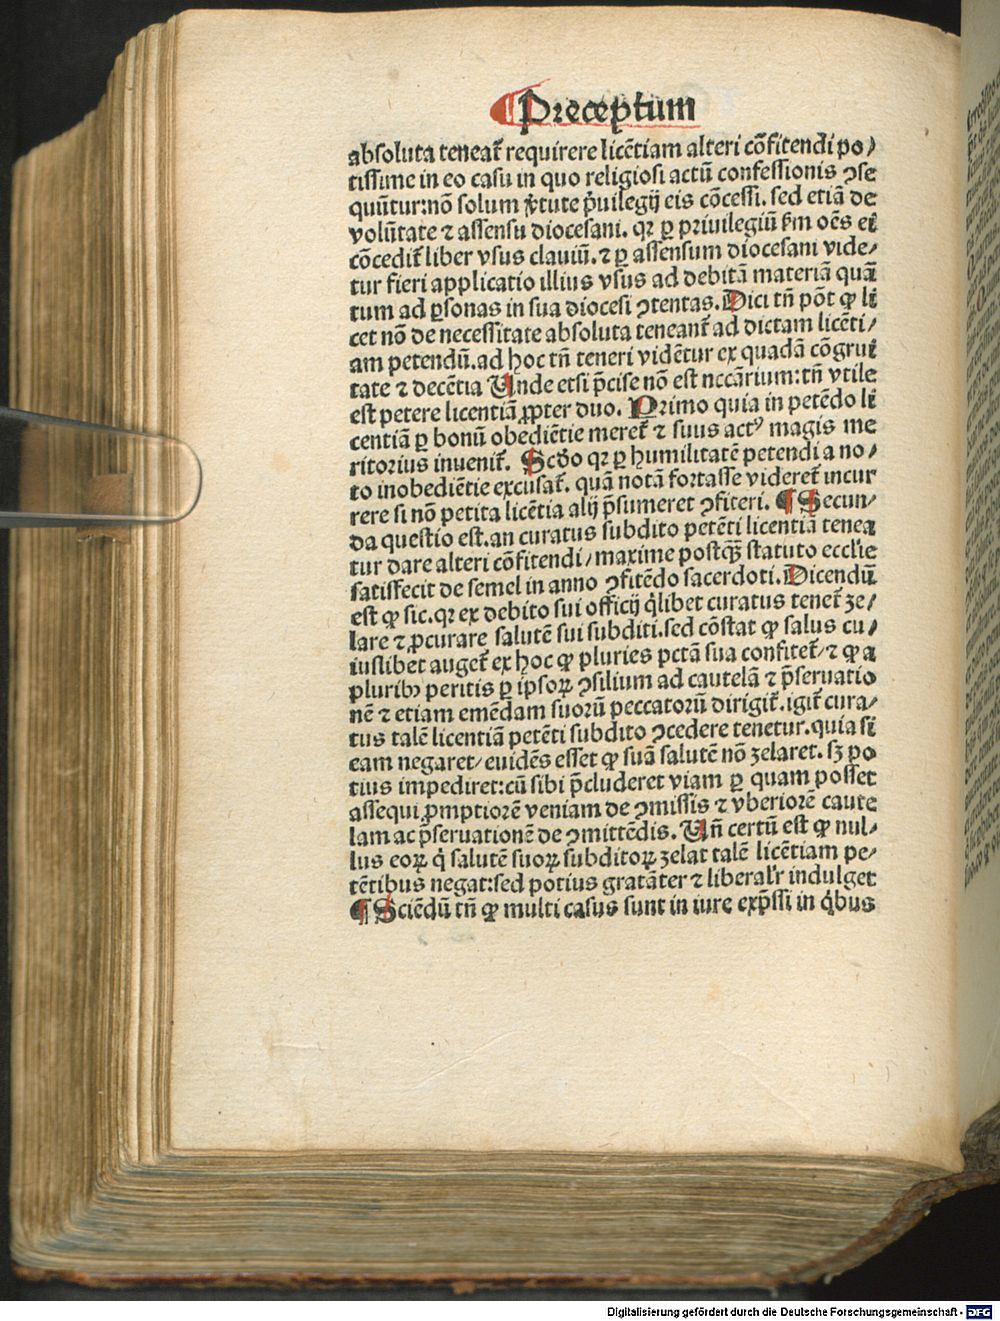 ¶ Preceptum
absoluta teneat̄ requirere licētiam alteri cōfitendi po⸗
tissime in eo casu in quo religiosi actū confessionis ꝯse
quūtur:nō solum v̓tute p̓uilegij eis cōcessi. sed etiā de
volūtate ⁊ assensu diocesani. qꝛ ꝑ priuilegiū f̄m oēs ei
cōcedit̄ liber vsus clauiū. ⁊ ꝑ assensum diocesani vide⸗
tur fieri applicatio illius vsus ad debitā materiā quā
tum ad ꝑsonas in sua diocesi ꝯtentas. Dici tn̄ pōt ꝙ li
cet nō de necessitate absoluta teneant̄ ad dictam licēti⸗
am petendū.ad hoc tn̄ teneri vidētur ex quadā cōgrui
tate ⁊ decētia Unde etsi p̄cise nō est nccārium:tn̄ vtile
est petere licentiā ꝓpter duo. Primo quia in petēdo li
centiā ꝑ bonū obediētie meret̄ ⁊ suus actꝰ magis me
ritorius inuenit̄. Scḋo qꝛ ꝑ humilitatē petendi a no⸗
to inobediētie excusat̄. quā notā fortasse videret̄ incur
rere si nō petita licētia alij p̄sumeret ꝯfiteri. ¶ Secun⸗
da questio est.an curatus subdito petēti licentiā tenea
tur dare alteri cōfitendi/maxime postqꝫ̄ statuto eccl̄ie
satisfecit de semel in anno ꝯfitēdo sacerdoti. Dicendū
est ꝙ sic.qꝛ ex debito sui officij q̇libet curatus tenet̄ ze⸗
lare ⁊ ꝓcurare salutē sui subditi.sed cōstat ꝙ salus cu⸗
iuslibet auget̄ ex hoc ꝙ pluries pctā sua confitet̄/⁊ ꝙ a
pluribꝫ peritis ꝑ ipsoꝝ ꝯsilium ad cautelā ⁊ p̄seruatio
nē ⁊ etiam emēdam suorū peccatorū dirigit̄.igit̄ cura⸗
tus talē licentiā petēti subdito ꝯcedere tenetur.quia si
eam negaret/euidēs esset ꝙ suā salutē nō zelaret. sꝫ po
tius impediret:cū sibi p̄cluderet viam ꝑ quam posset
assequi ꝓmptiorē veniam de ꝯmissis ⁊ vberiorē caute
lam ac p̄seruationē de ꝯmittēdis. Un̄ certū est ꝙ nul⸗
lus eoꝝ q̇ salutē suoꝝ subditoꝝ zelat talē licētiam pe⸗
tētibus negat:sed potius gratāter ⁊ liberal̓r indulget
¶ Sciēdū tn̄ ꝙ multi casus sunt in iure exp̄ssi in q̇bus
Digitalisierung gefördert durch die Deutsche Forschungsgemeinschaft - DFG